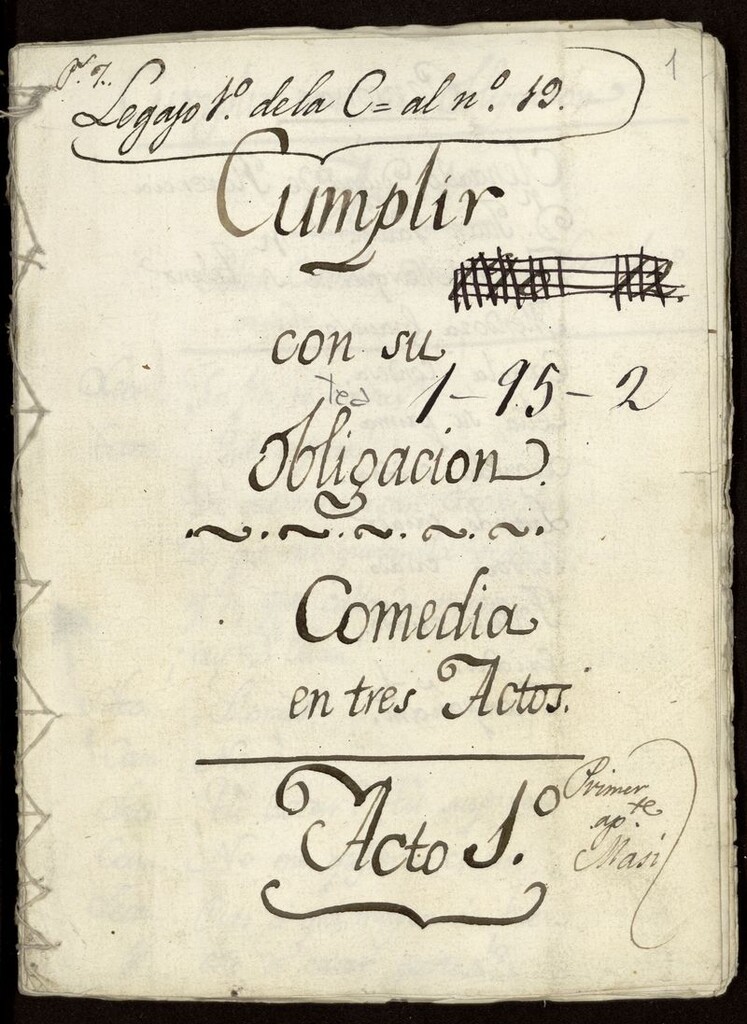 1
Legajo 1º. de la C= al nº. 19.
Cumplir
con su
Tea 1-95-2
Obligacion.
Comedia
en tres Actos.
Acto 1.º
Primer
ap.te
Masi